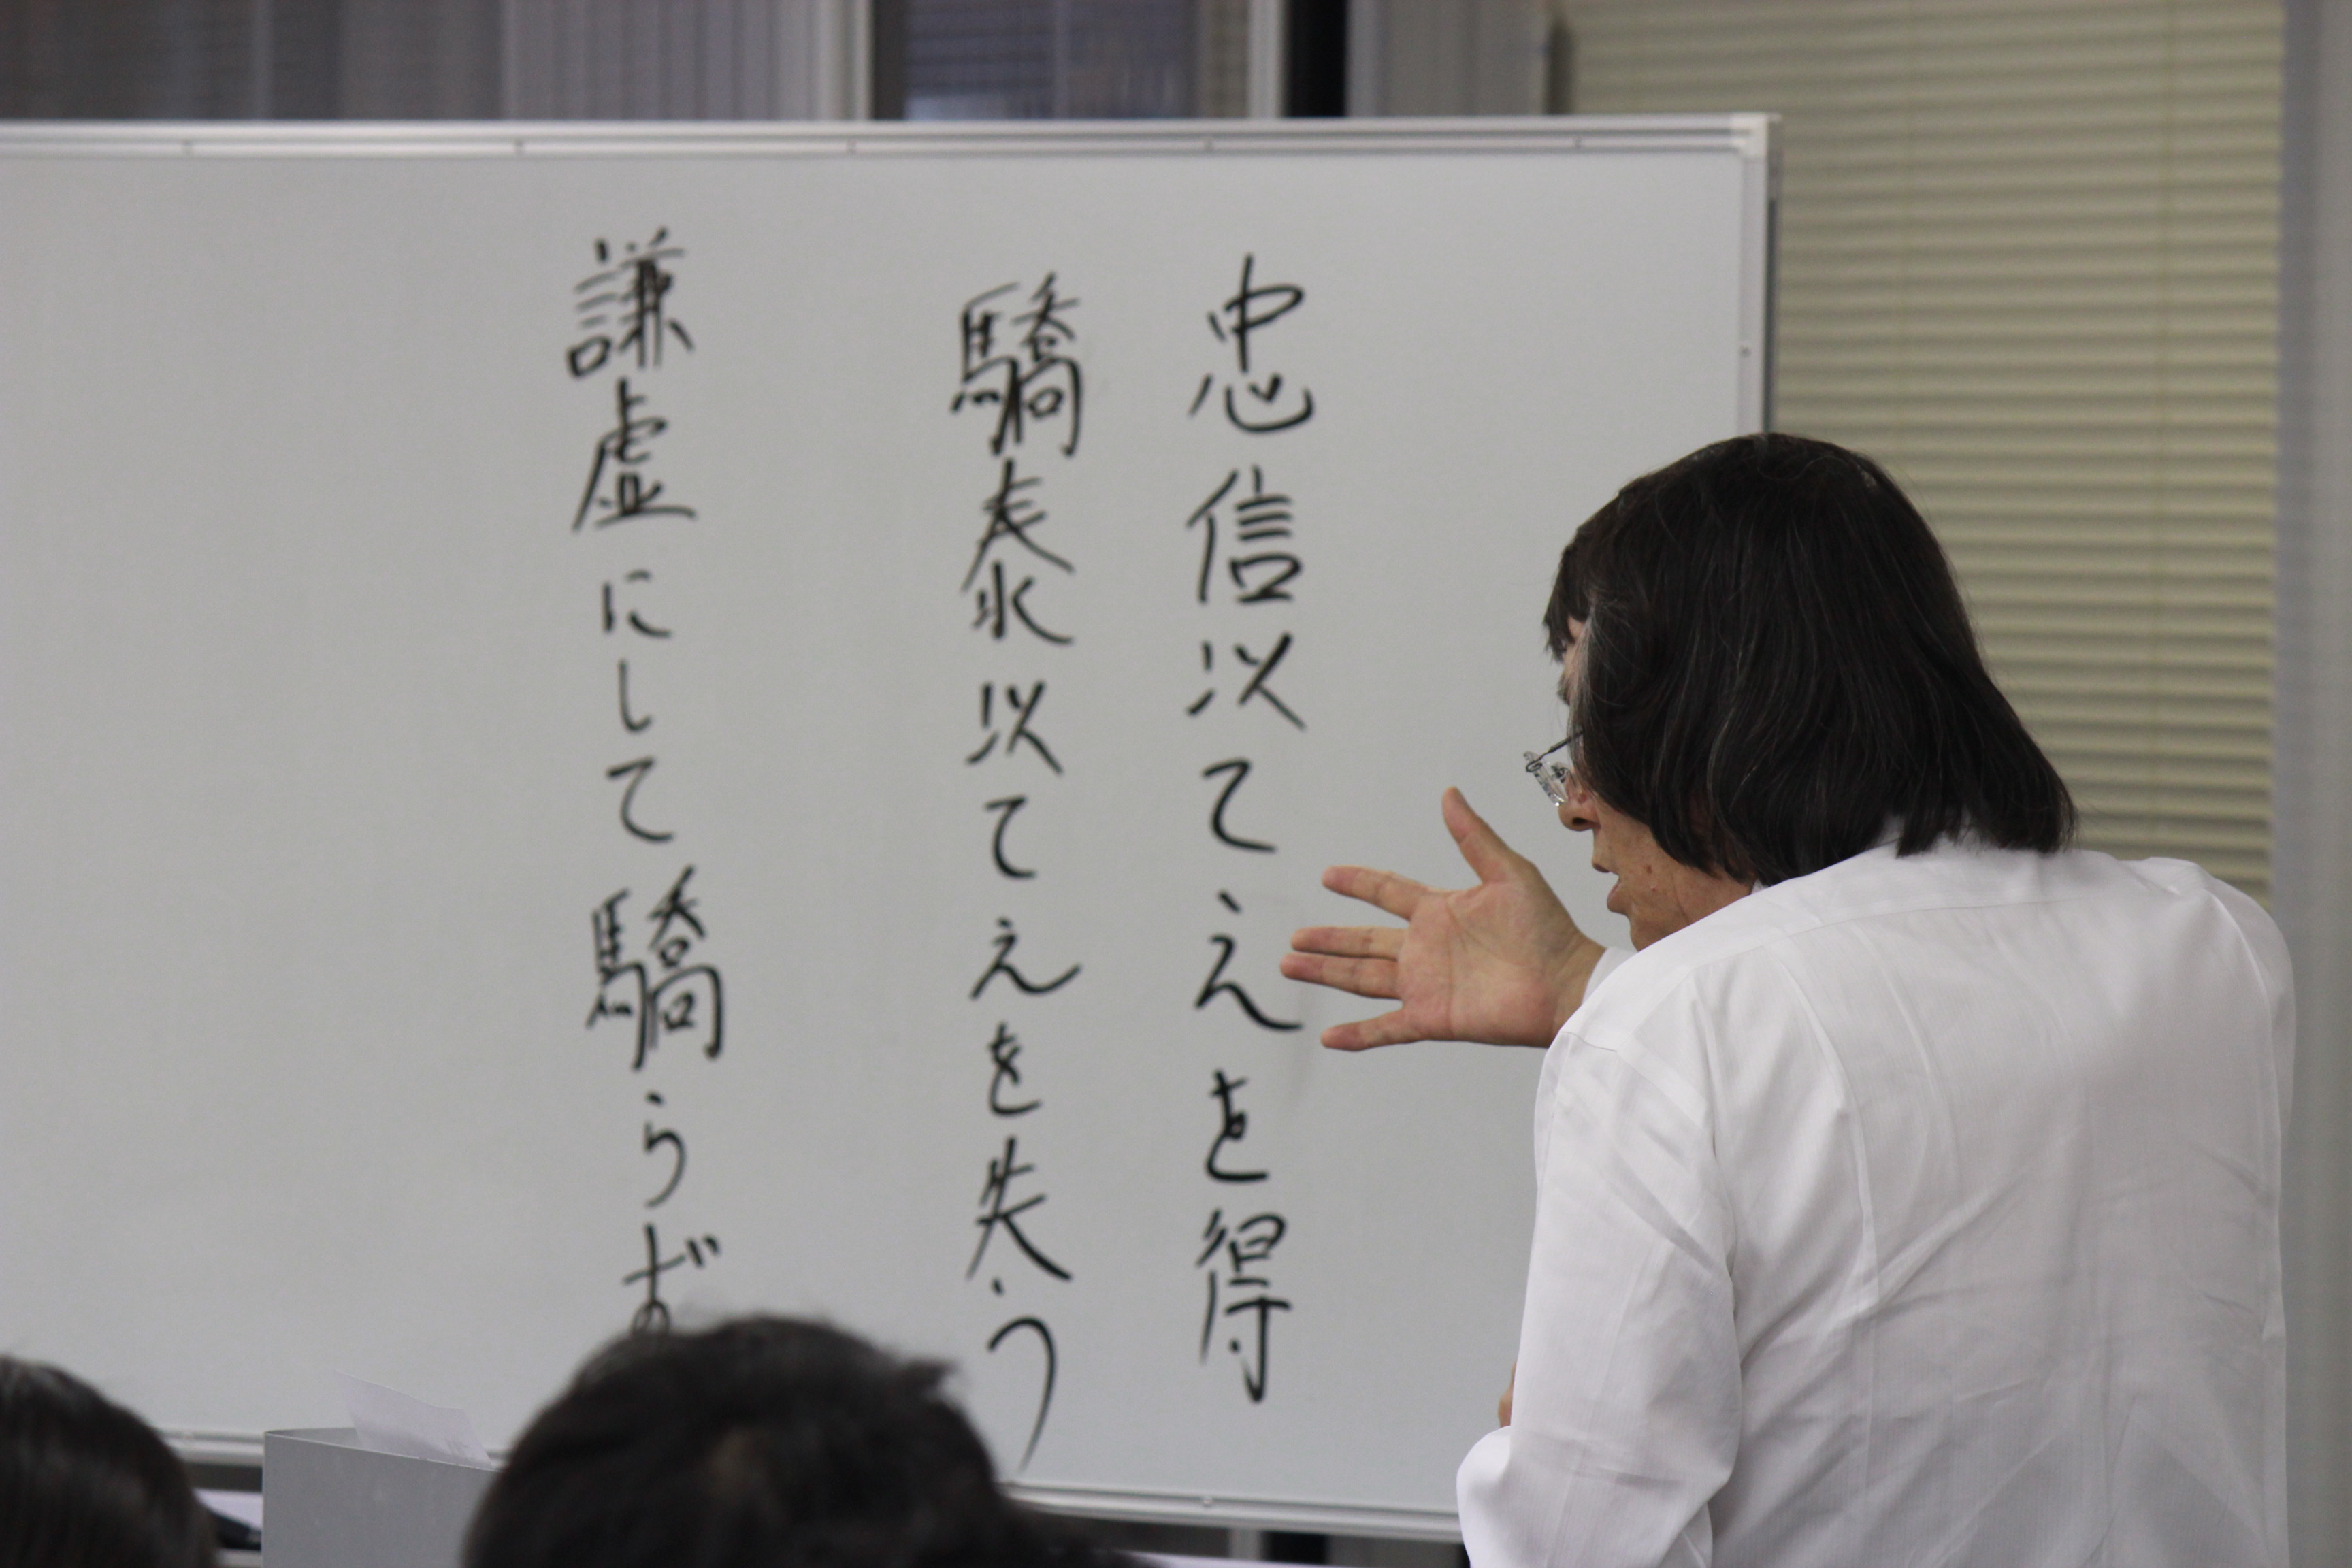 忠信以てえを得
驕泰以てえを失う
謙虚にして驕らず